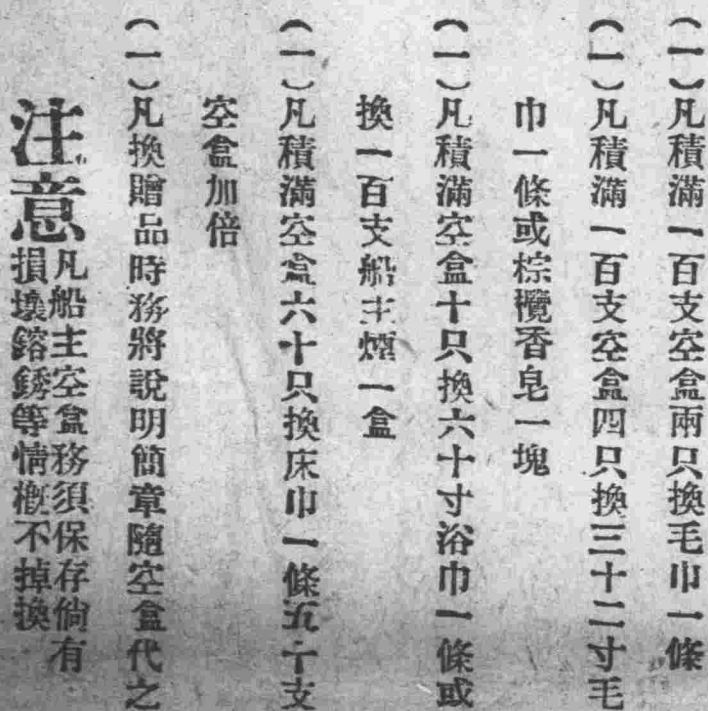 (一)凡積滿一百支空盒兩只換毛巾一條
(一)凡積滿一百支空盒四只換三十二寸毛
巾一條或棕欖香皂一塊
(一)凡積滿空盒十只換六十寸浴巾一條或
換一百支船主煙一盒
(一)凡積滿空盒六十只換床巾一條五十支
空盒加倍
(一)凡換贈品時務將說明簡章隨空盒代之
注意
凡船主空盒務須保存倘有
損壞鎔銹等情槪不掉換